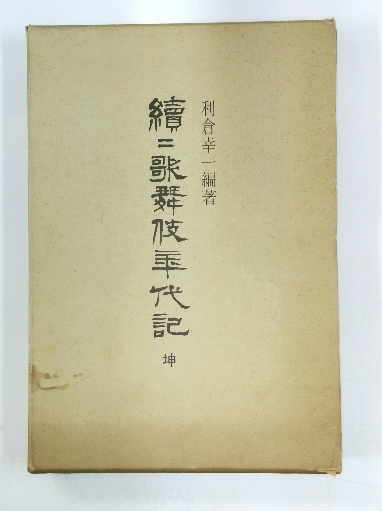 利倉幸一編著
續〻歌舞伎年代記
坤